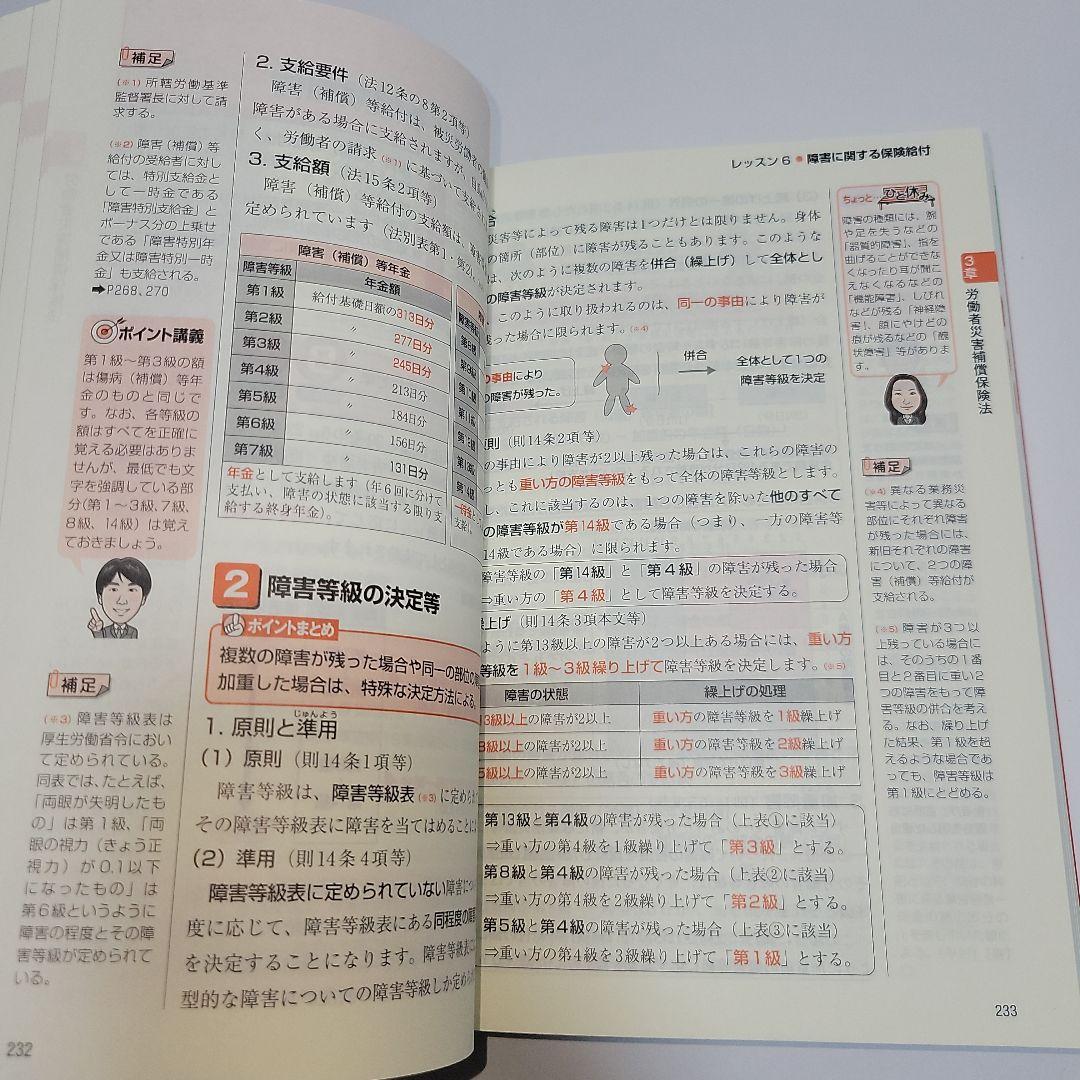 補足
(※1) 所轄労働基準
監督署長に対して請
求する。
(※2) 障害(補償)等
給付の受給者に対し
ては、特別支給金と
して一時金である
「障害特別支給金」と
ボーナス分の上乗せ
である「障害特別年
金又は障害特別一時
金」も支給される。
➡P268、270
ポイント講義
第1級〜第3級の額
は傷病(補償)等年
金のものと同じで
す。なお、各等級の
額はすべてを正確に
覚える必要はありま
せんが、最低でも文
字を強調している部
分(第1〜3級、7級、
8級、14級)は覚え
ておきましょう。
補足
(※3) 障害等級表は
厚生労働省令におい
て定められている。
同表では、たとえば、
「両眼が失明したも
の」は第1級、「両
眼の視力(きょう正
視力)が0.1以下
になったもの」は
第6級というように
障害の程度とその障
害等級が定められて
いる。
232
2. 支給要件(法12条の8第2項等)
障害(補償)等給付は、被災労働者の
障害がある場合に支給されますが、
く、労働者の請求(※1)に基づいて支給
3. 支給額(法15条2項等)
障害(補償)等給付の支給額は、
定められています(法別表第1・第2)
障害(補償)等年金
障害等級 年金額
第1級 給付基礎日額の313日分
第2級 〃 277日分
第3級 〃 245日分
第4級 〃 213日分
第5級 〃 184日分
第6級 〃 156日分
第7級 〃 131日分
年金として支給します(年6回に分けて
支払い、障害の状態に該当する限り支
給する終身年金)。
2 障害等級の決定等
ポイントまとめ
複数の障害が残った場合や同一の部位の
加重した場合は、特殊な決定方法による。
1. 原則と準用
じゅんよう
(1) 原則(則14条1項等)
障害等級は、障害等級表(※3)に定められ
その障害等級表に障害を当てはめることに
(2) 準用(則14条4項等)
障害等級表に定められていない障害につ
度に応じて、障害等級表にある同程度の障
を決定することになります。障害等級表に
型的な障害についての障害等級しか定めら
レッスン6 ● 障害に関する保険給付
合
災害等によって残る障害は1つだけとは限りません。身体
の箇所(部位)に障害が残ることもあります。このような
は、次のように複数の障害を併合(繰上げ)して全体とし
の障害等級が決定されます。
このように取り扱われるのは、同一の事由により障害が
残った場合に限られます。(※4)
の事由により
の障害が残った。
併合
全体として1つの
障害等級を決定
原則(則14条2項等)
の事由により障害が2以上残った場合は、これらの障害の
っとも重い方の障害等級をもって全体の障害等級とします。
し、これに該当するのは、1つの障害を除いた他のすべて
の障害等級が第14級である場合(つまり、一方の障害等
14級である場合)に限られます。
障害等級の「第14級」と「第4級」の障害が残った場合
⇒重い方の「第4級」として障害等級を決定する。
繰上げ(則14条3項本文等)
ように第13級以上の障害が2つ以上ある場合には、重い方
等級を1級〜3級繰り上げて障害等級を決定します。(※5)
障害の状態 繰上げの処理
13級以上の障害が2以上 重い方の障害等級を1級繰上げ
8級以上の障害が2以上 重い方の障害等級を2級繰上げ
5級以上の障害が2以上 重い方の障害等級を3級繰上げ
第13級と第4級の障害が残った場合(上表①に該当)
⇒重い方の第4級を1級繰り上げて「第3級」とする。
第8級と第4級の障害が残った場合(上表②に該当)
⇒重い方の第4級を2級繰り上げて「第2級」とする。
第5級と第4級の障害が残った場合(上表③に該当)
⇒重い方の第4級を3級繰り上げて「第1級」とする。
ちょっと ひと休み
障害の種類には、腕
や足を失うなどの
「器質的障害」、指を
曲げることができな
くなったり耳が聞こ
えなくなるなどの
「機能障害」、しびれ
などが残る「神経障
害」、顔にやけどの
痕が残るなどの「醜
状障害」等がありま
す。
3章
労働者災害補償保険法
補足
(※4) 異なる業務災
害等によって異なる
部位にそれぞれ障害
が残った場合には、
新旧それぞれの障害
について、2つの障
害(補償)等給付が
支給される。
(※5) 障害が3つ以
上残っている場合に
は、そのうちの1番
目と2番目に重い2
つの障害をもって障
害等級の併合を考え
る。なお、繰り上げ
た結果、第1級を超
えるような場合であ
っても、障害等級は
第1級にとどめる。
233